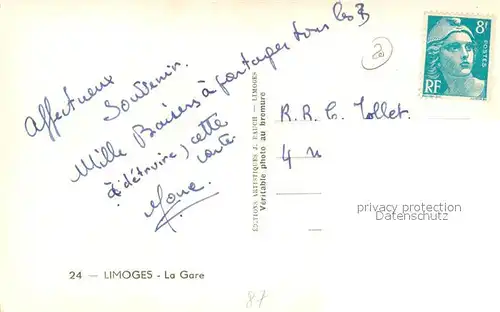 Affectueux
Souvenir.
Mille Baisers à partager tous les 3
à (détruire) cette
carte.
8f
POSTES
RF
R. R. C. Collet.
4 u
EDITIONS ARTISTIQUES J. FAUCH — LIMOGES
Véritable photo au bromure
privacy protection
Datenschutz
24 — LIMOGES - La Gare
87